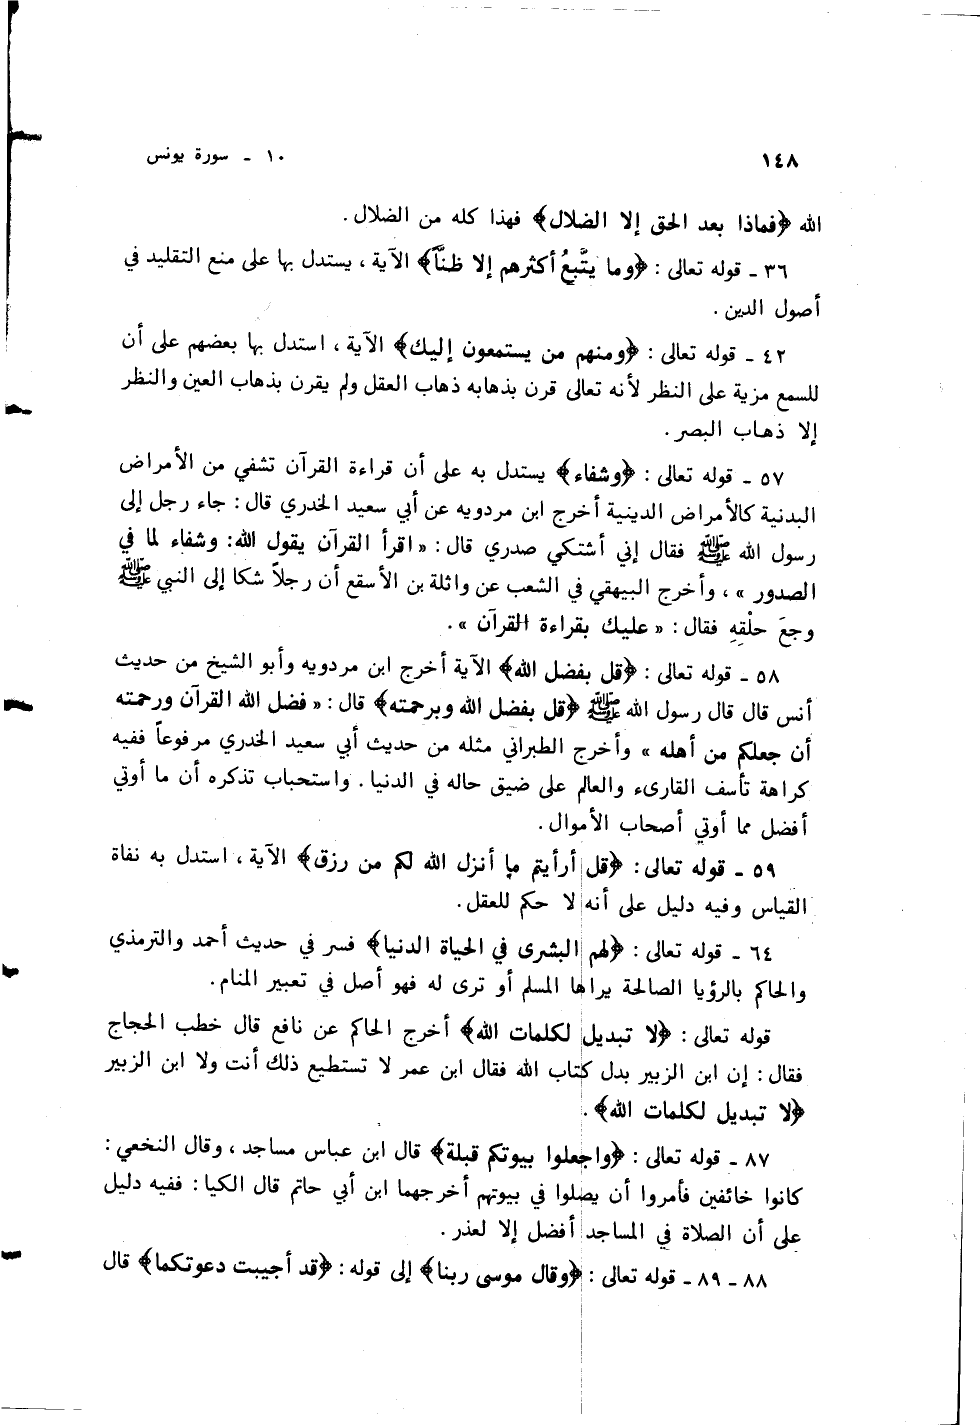 ١٤٨ ١٠ ـ سورة يونس
الله ﴿فماذا بعد الحق إلا الضلال﴾ فهذا كله من الضلال.
٣٦ ـ قوله تعالى: ﴿وما يتَّبعُ أكثرهم إلا ظنَّاً﴾ الآية، يستدل بها على منع التقليد في
أصول الدين.
٤٢ ـ قوله تعالى: ﴿ومنهم من يستمعون إليك﴾ الآية، استدل بها بعضهم على أن
للسمع مزية على النظر لأنه تعالى قرن بذهابه ذهاب العقل ولم يقرن بذهاب العين والنظر
إلا ذهاب البصر.
٥٧ ـ قوله تعالى: ﴿وشفاء﴾ يستدل به على أن قراءة القرآن تشفي من الأمراض
البدنية كالأمراض الدينية أخرج ابن مردويه عن أبي سعيد الخدري قال: جاء رجل إلى
رسول الله ﷺ فقال إني أشتكي صدري قال: «اقرأ القرآن يقول الله: وشفاء لما في
الصدور»، وأخرج البيهقي في الشعب عن واثلة بن الأسقع أن رجلاً شكا إلى النبي ﷺ
وجعَ حلْقِهِ فقال: «عليك بقراءة القرآن».
٥٨ ـ قوله تعالى: ﴿قل بفضل الله﴾ الآية أخرج ابن مردويه وأبو الشيخ من حديث
أنس قال قال رسول الله ﷺ ﴿قل بفضل الله وبرحمته﴾ قال: «فضل الله القرآن ورحمته
أن جعلكم من أهله» وأخرج الطبراني مثله من حديث أبي سعيد الخدري مرفوعاً ففيه
كراهة تأسف القارىء والعالم على ضيق حاله في الدنيا. واستحباب تذكره أن ما أوتي
أفضل مما أوتي أصحاب الأموال.
٥٩ ـ قوله تعالى: ﴿قل أرأيتم ما أنزل الله لكم من رزق﴾ الآية، استدل به نفاة
القياس وفيه دليل على أنه لا حكم للعقل.
٦٤ ـ قوله تعالى: ﴿لهم البشرى في الحياة الدنيا﴾ فسر في حديث أحمد والترمذي
والحاكم بالرؤيا الصالحة يراها المسلم أو ترى له فهو أصل في تعبير المنام.
قوله تعالى: ﴿لا تبديل لكلمات الله﴾ أخرج الحاكم عن نافع قال خطب الحجاج
فقال: إن ابن الزبير بدل كتاب الله فقال ابن عمر لا تستطيع ذلك أنت ولا ابن الزبير
﴿لا تبديل لكلمات الله﴾.
٨٧ ـ قوله تعالى: ﴿واجعلوا بيوتكم قبلة﴾ قال ابن عباس مساجد، وقال النخعي:
كانوا خائفين فأمروا أن يصلوا في بيوتهم أخرجهما ابن أبي حاتم قال الكيا: ففيه دليل
على أن الصلاة في المساجد أفضل إلا لعذر.
٨٨ ـ ٨٩ ـ قوله تعالى: ﴿وقال موسى ربنا﴾ إلى قوله: ﴿قد أجيبت دعوتكما﴾ قال